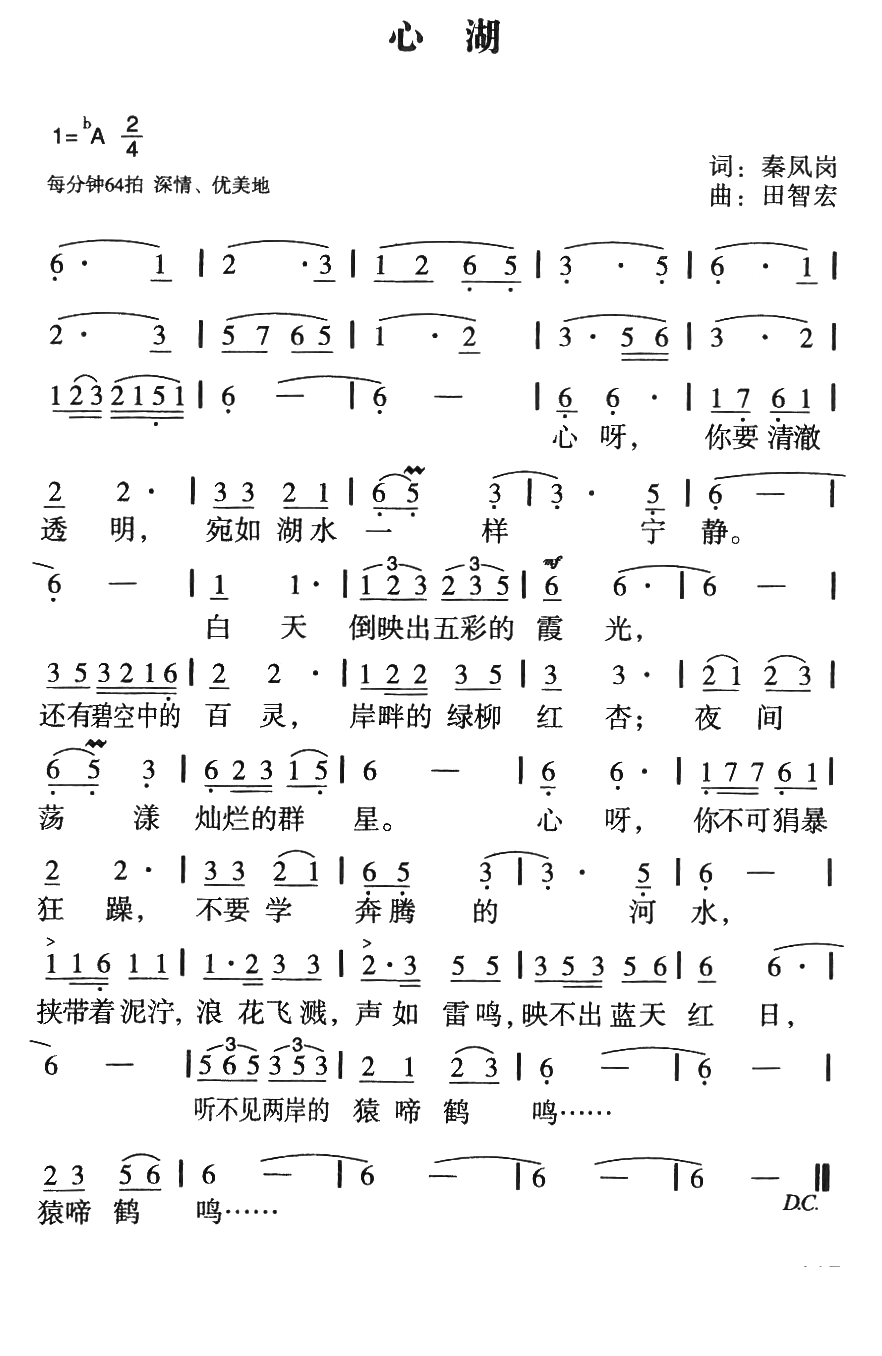 心 湖
1=ᵇA 2/4
词：秦凤岗
每分钟64拍 深情、优美地
曲：田智宏
6· 1 | 2 ·3 | 1 2 6 5 | 3 · 5 | 6 · 1 |
2· 3 | 5 7 6 5 | 1 · 2 | 3· 5 6 | 3 · 2 |
1 2 3 2 1 5 1 | 6 — | 6 — | 6 6 · | 1 7 6 1 |
心 呀， 你要 清澈
2 2 · | 3 3 2 1 | 6 5 3 | 3 · 5 | 6 — |
透 明， 宛如 湖水 一 样 宁 静。
6 — | 1 1 · | 3 1 2 3 3 2 3 5 | mf 6 6 · | 6 — |
白 天 倒映出五彩的 霞 光，
3 5 3 2 1 6 | 2 2 · | 1 2 2 3 5 | 3 3 · | 2 1 2 3 |
还有碧空中的 百 灵， 岸畔的 绿柳 红 杏； 夜 间
6 5 3 | 6 2 3 1 5 | 6 — | 6 6 · | 1 7 7 6 1 |
荡 漾 灿烂的群 星。 心 呀， 你不可狷暴
2 2 · | 3 3 2 1 | 6 5 3 | 3 · 5 | 6 — |
狂 躁， 不要 学 奔腾 的 河 水，
> >
1 1 6 1 1 | 1 · 2 3 3 | 2 · 3 5 5 | 3 5 3 5 6 | 6 6 · |
挟带着泥泞，浪 花飞溅，声 如 雷鸣，映不出蓝天 红 日，
6 — | 3 5 6 5 3 3 5 3 | 2 1 2 3 | 6 — | 6 — |
听不见两岸的 猿 啼 鹤 鸣……
2 3 5 6 | 6 — | 6 — | 6 — | 6 — ||
猿啼 鹤 鸣……
D.C.